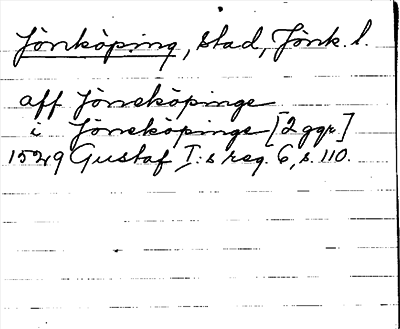 Jönköping, stad, Jönk. l.
aff Jönsköpinge
i Jönsköpinge [2 ggr]
1529 Gustaf I:s reg. 6, s. 110.